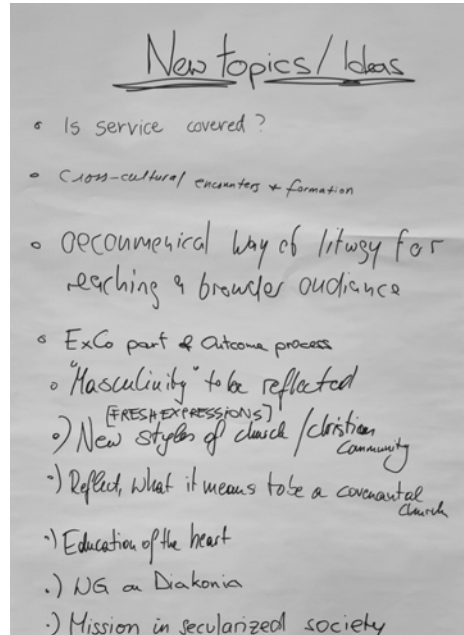 New topics/Ideas
• Is service covered?
• Cross-cultural encounters + formation
• oecoumenical way of liturgy for
reaching a broader audiance
• ExCo part of Outcome process
• "Masculinity" to be reflected
[FRESH EXPRESSIONS]
•) New styles of church / christian
community
•) Reflect, what it means to be a covenantal
church
•) Education of the heart
•) WG on Diakonia
•) Mission in secularized society